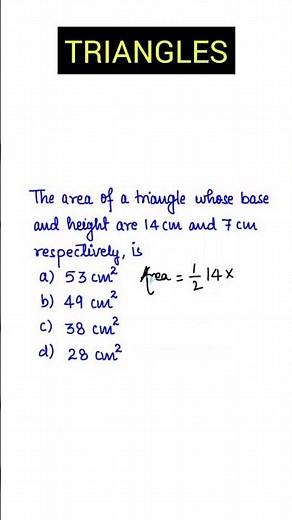 TRIANGLES
The area of a triangle whose base
and height are 14 cm and 7 cm
respectively, is
a) 53 cm² Area = 1/2 14 ×
b) 49 cm²
c) 38 cm²
d) 28 cm²